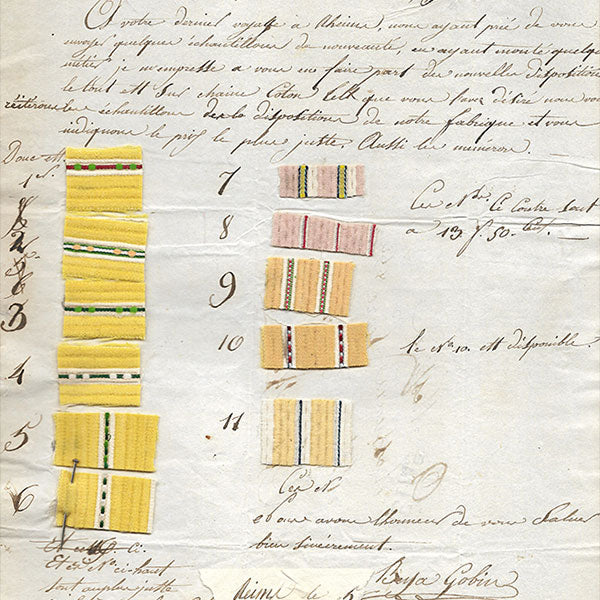 A votre dernier voyage a Rheims, nous ayant prié de vous
envoyer quelques échantillons de nouveauté, en ayant monté quelque
métiers je m'empresse a vous en faire part des nouvelles disposition
le tout est sur chaine Coton telle que vous l'avez désiré nous vou
réitérons les échantillons de la dispositions de notre fabrique et vous
indiquons le prix le plus juste. Aussi les numéros.
Donc
1
2
3
4
5
6
7
8
9
10
11
Ces Nos. Ci Contre sont
a 13 f 50.
le No. 10. est disponible.
Ces No
et vous avons l'honneur de vous Saluer
bien sincèrement.
Et ci.
Et ces No ci-haut
sont au plus juste
Reims le
Gobin